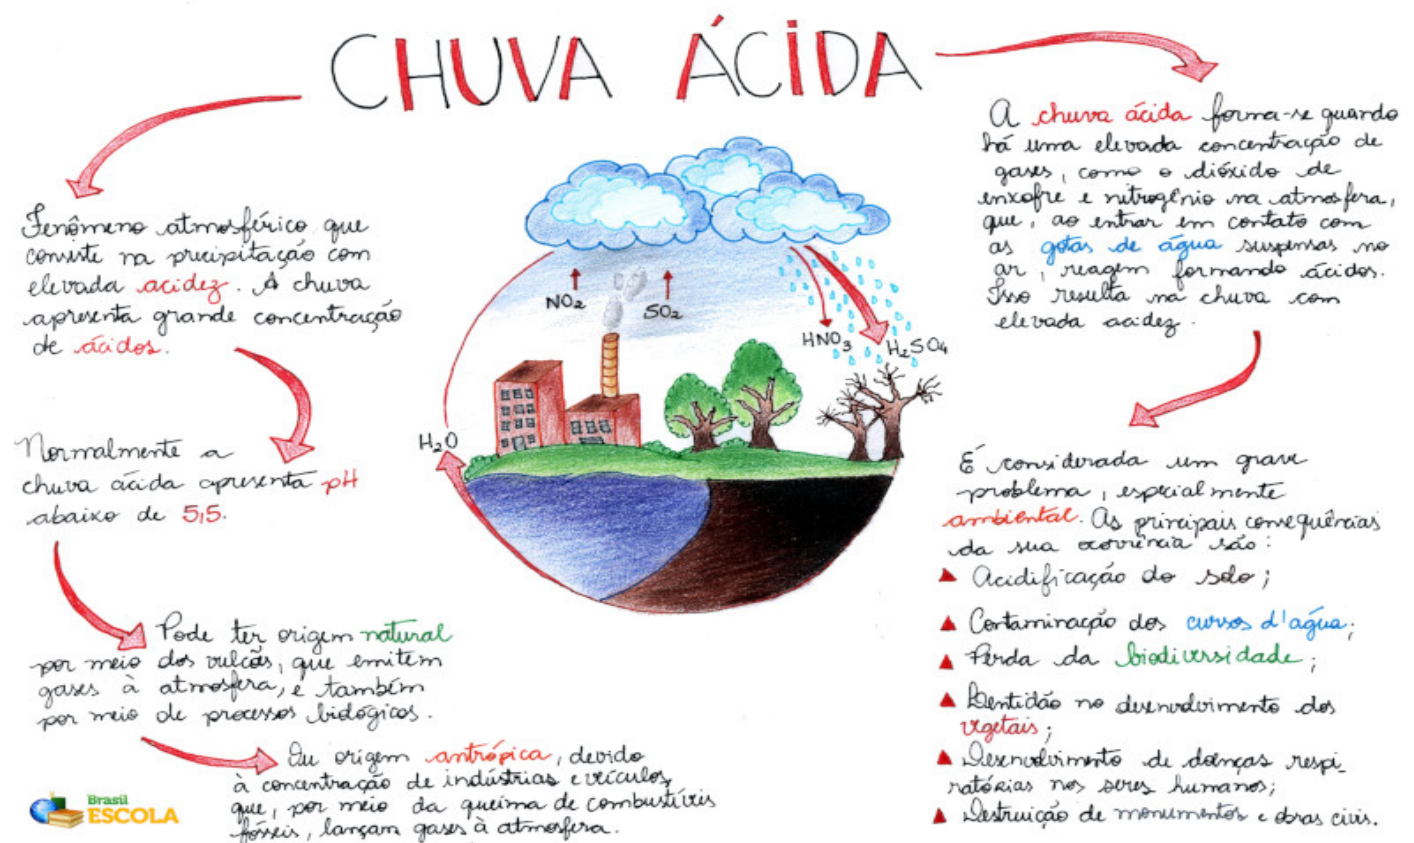 CHUVA ÁCIDA
Fenômeno atmosférico que
consiste na precipitação com
elevada acidez. A chuva
apresenta grande concentração
de ácidos.
Normalmente a
chuva ácida apresenta pH
abaixo de 5,5.
Pode ter origem natural
por meio dos vulcões, que emitem
gases à atmosfera, e também
por meio de processos biológicos.
Ou origem antrópica, devido
à concentração de indústrias e veículos,
que, por meio da queima de combustíveis
fósseis, lançam gases à atmosfera.
Brasil
ESCOLA
NO₂
SO₂
HNO₃
H₂SO₄
H₂O
A chuva ácida forma-se quando
há uma elevada concentração de
gases, como o dióxido de
enxofre e nitrogênio na atmosfera,
que, ao entrar em contato com
as gotas de água suspensas no
ar, reagem formando ácidos.
Isso resulta na chuva com
elevada acidez.
É considerada um grave
problema, especialmente
ambiental. As principais consequências
da sua ocorrência são:
Acidificação do solo;
Contaminação dos cursos d'água;
Perda da biodiversidade;
Lentidão no desenvolvimento dos
vegetais;
Desenvolvimento de doenças respi-
ratórias nos seres humanos;
Destruição de monumentos e obras civis.